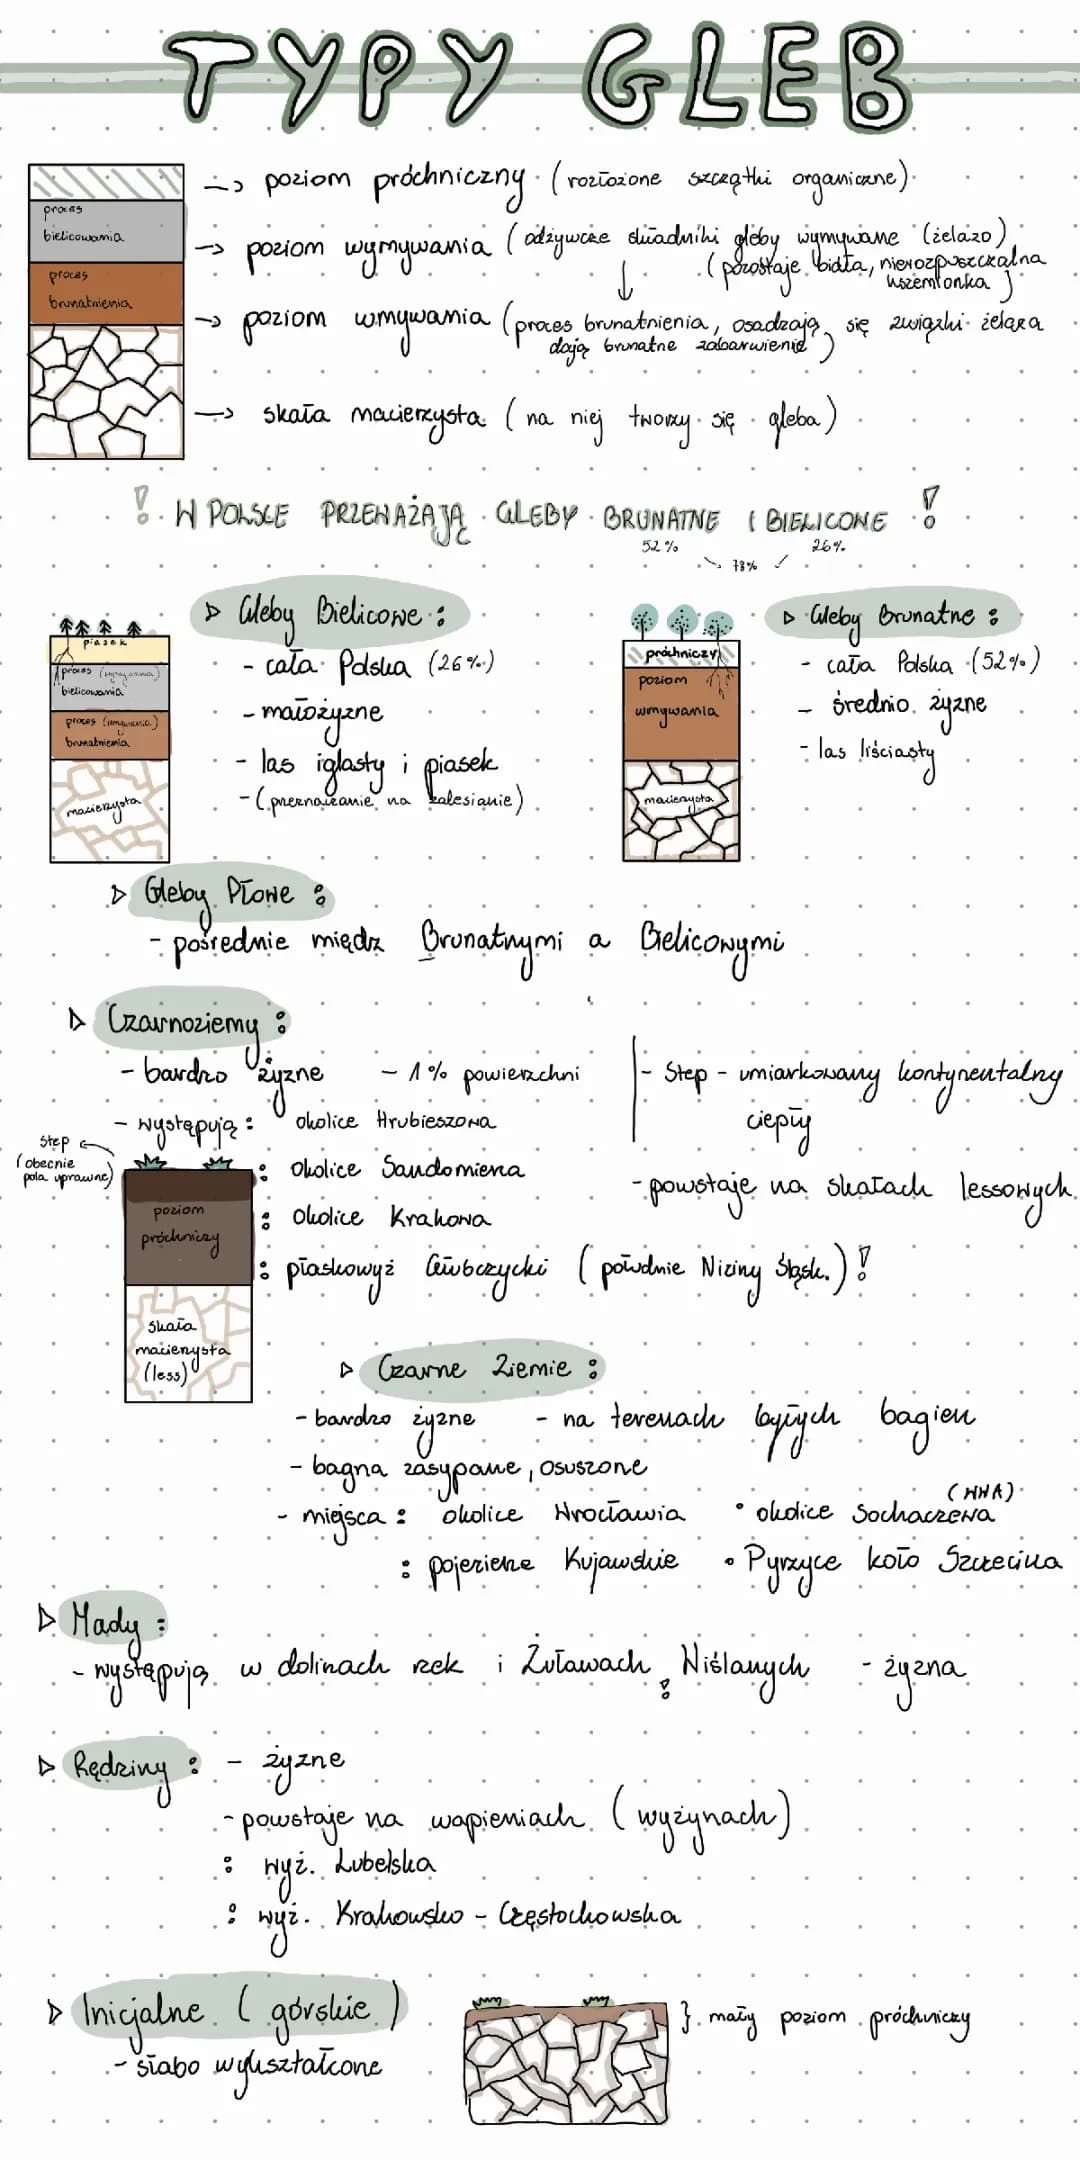 TYPY GLEB
proces
bielicowania
proces
brunatnienia
-> poziom próchniczny (rozłożone szczątki organiczne)
-> poziom wymywania (odżywcze składniki gleby wymywane (żelazo)
(pozostaje biała, nierozpuszczalna
krzemionka)
-> poziom wmywania (proces brunatnienia, osadzają się związki żelaza
dają brunatne zabarwienie)
-> skała macierzysta (na niej tworzy się gleba)
! W POLSCE PRZEWAŻAJĄ GLEBY BRUNATNE I BIELICOWE !
52% 26%
78%
▷ Gleby Bielicowe:
- cała Polska (26%)
- małożyzne
- las iglasty i piasek
- (przeznaczanie na zalesianie)
piasek
proces (wymywania)
bielicowania
proces (wmywania)
brunatnienia
macierzysta
▷ Gleby Brunatne:
- cała Polska (52%)
- średnio żyzne
- las liściasty
próchniczy
poziom
wmywania
macierzysta
▷ Gleby Płowe:
- pośrednie międz Brunatnymi a Bielicowymi
▷ Czarnoziemy:
- bardzo żyzne - 1% powierzchni
- występują: okolice Hrubieszowa
: Okolice Sandomierza
: Okolice Krakowa
: płaskowyż Głubczycki (południe Niziny Śląsk.)!
- Step - umiarkowany kontynentalny
ciepły
- powstaje na skałach lessowych
step
(obecnie
pola uprawne)
poziom
próchniczy
skała
macierzysta
(less)
▷ Czarne Ziemie:
- bardzo żyzne - na terenach byłych bagien
- bagna zasypane, osuszone
- miejsca: okolice Wrocławia • okolice Sochaczewa (WWA)
: pojezierze Kujawskie • Pyrzyce koło Szczecina
▷ Mady:
- występują w dolinach rzek i Żuławach Wiślanych! - żyzna
▷ Rędziny: - żyzne
- powstaje na wapieniach (wyżynach)
: wyż. Lubelska
: wyż. Krakowsko - Częstochowska
▷ Inicjalne (górskie)
- słabo wykształcone
} mały poziom próchniczy